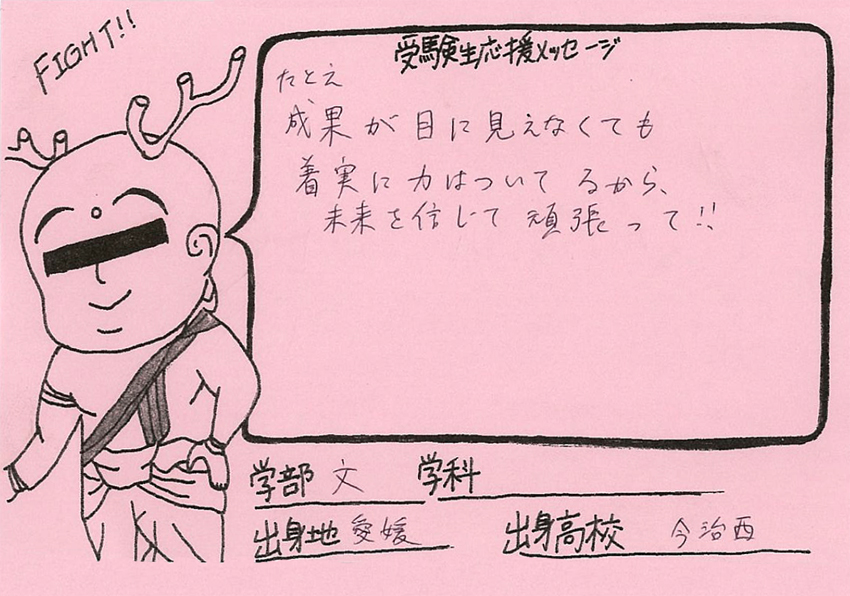 FIGHT!!
受験生応援メッセージ
たとえ
成果が目に見えなくても
着実に力はついてるから、
未来を信じて頑張って!!
学部 文 学科
出身地 愛媛 出身高校 今治西